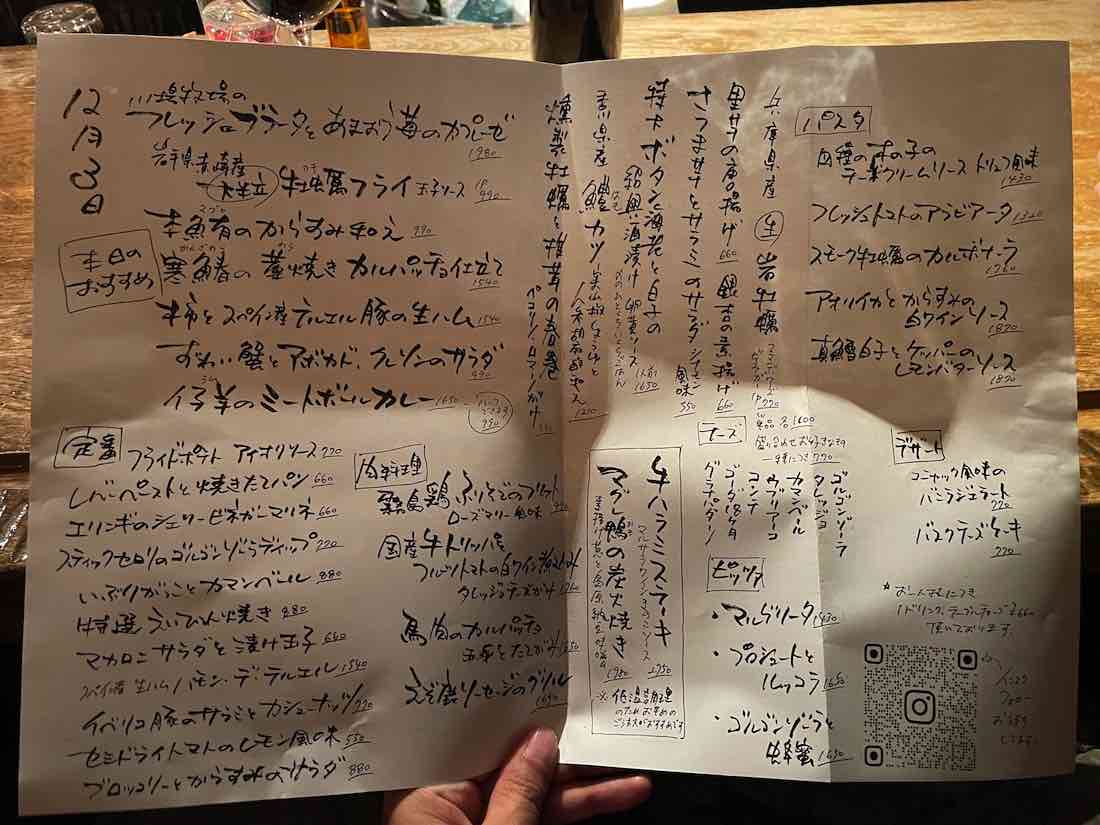 12月3日
川場牧場の
フレッシュブラータとあまおう苺のカプレーゼ
1980
岩手県赤崎産
牡蠣フライ 玉子ソース 1P 990
からすみ和え 990
本日の
おすすめ
寒鰆の藁焼き カルパッチョ仕立て
1540
柿とスペイン産テルエル豚の生ハム 1540
ずわい蟹とアボカド、クレソンのサラダ
990
仔羊のミートボールカレー 1650
燻製牡蠣と椎茸の春巻
ペコリーノ・ロマーノがけ
香川県産 鱧カツ
特大ボタン海老と白子の
紹興酒漬け 卵黄ソース
1650
さつま芋とサラミのサラダ シナモン風味 550
里芋の唐揚げ 660 銀杏の素揚げ 660
兵庫県産 生 岩牡蠣
パスタ
四種の木の子の
クリームソース トリュフ風味
1430
フレッシュトマトのアラビアータ 1320
スモーク牡蠣のカルボナーラ
1760
アオリイカとからすみの
白ワインソース
1870
真鱈白子とケッパーの
レモンバターソース
1870
定番
フライドポテト アイオリソース 770
レバーペーストと焼きたてパン 660
エリンギのシェリービネガーマリネ 660
スティックセロリのゴルゴンゾーラディップ 770
いぶりがっことカマンベール 880
特選 えいひれ焼き 880
マカロニサラダと漬け玉子 660
スペイン産 生ハム ハモン・デ・テルエル 1540
イベリコ豚のサラミとカシューナッツ 770
セミドライトマトのレモン風味 550
ブロッコリーとからすみのサラダ 880
肉料理
霧島鶏 ふりそでのフリット
ローズマリー風味 990
国産牛トリッパと
フルーツトマトの白ワイン煮込み
タレッジョチーズがけ
馬肉のカルパッチョ
玉子をたてがみ 1650
えぞ鹿ソーセージのグリル
1650
牛ハラミステーキ
マルサラワインきのこソース
1950
マグレ鴨の炭火焼き
1950
※低温調理
のため、お早めの
ご注文がおすすめです
チーズ
盛り合わせ お好きなもの
一種につき 770
ゴルゴンゾーラ
タレッジョ
カマンベール
ウブリアーコ
コンテ
ゴーダ18ヶ月
グラナパダーノ
ピッツァ
・マルゲリータ 1430
・プロシュートと
ルッコラ 1650
・ゴルゴンゾーラと
蜂蜜 1650
デザート
コニャック風味の
バニラジェラート
770
バスクチーズケーキ
770
*お一人さまにつき
1ドリンク、テーブルチャージ 660
頂いております。
フォロー
お待ち
してます。